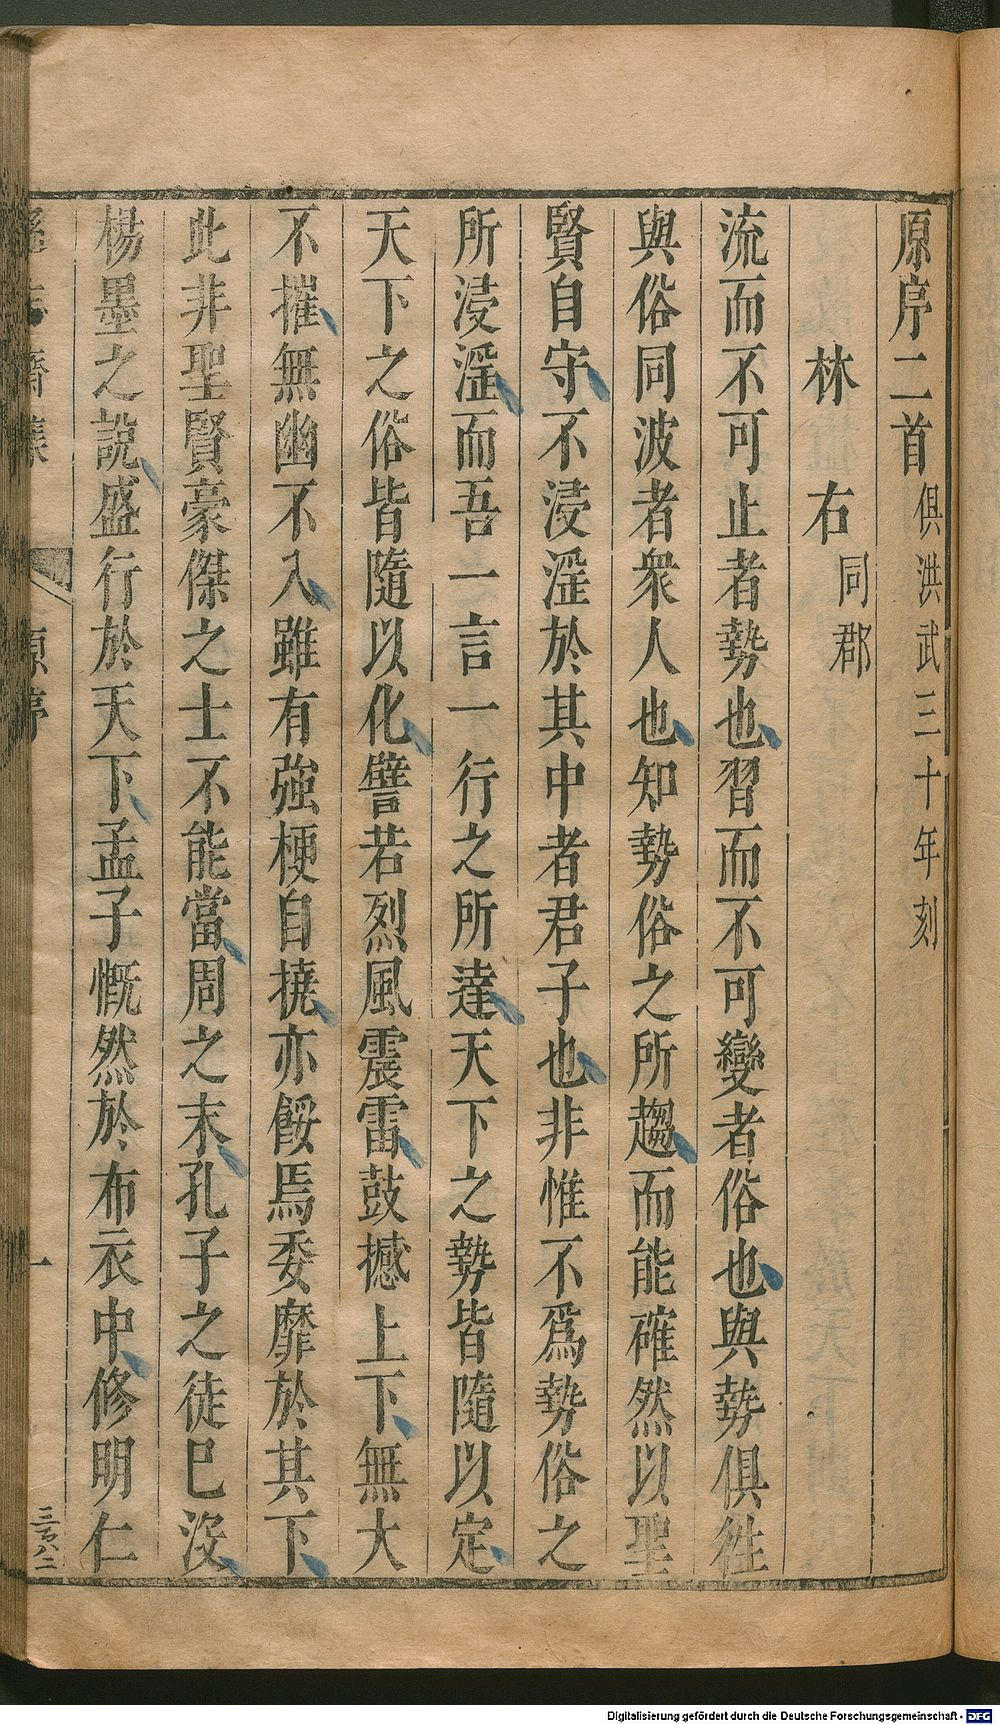 原序二首俱洪武三十年刻
林右同郡
流而不可止者勢也習而不可變者俗也與勢俱徃
與俗同波者衆人也知勢俗之所趨而能確然以聖
賢自守不浸淫於其中者君子也非惟不爲勢俗之
所浸淫而吾一言一行之所達天下之勢皆隨以定
天下之俗皆隨以化譬若烈風震雷鼓撼上下無大
不摧無幽不入雖有強梗自撓亦餒焉委靡於其下
此非聖賢豪傑之士不能當周之末孔子之徒巳沒
楊墨之說盛行於天下孟子慨然於布衣中修明仁
遜志齋集 原序 一 三百八二
Digitalisierung gefördert durch die Deutsche Forschungsgemeinschaft - DFG